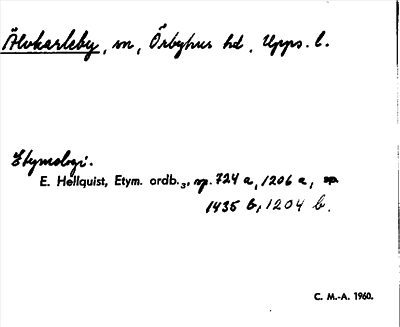 Älvkarleby, sn, Örbyhus hd, Upps. l.
Etymologi.
E. Hellquist, Etym. ordb.₃, sp. 724 a, 1206 a,
1435 b, 1204 b.
C. M.-A. 1960.